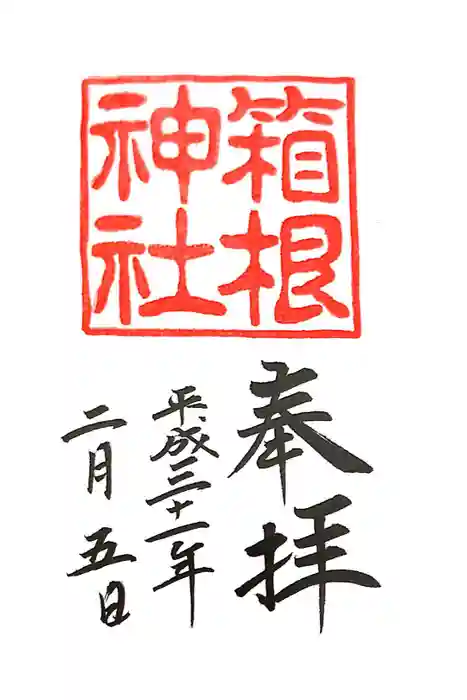 箱根
神社
奉拝
平成三十一年
二月五日